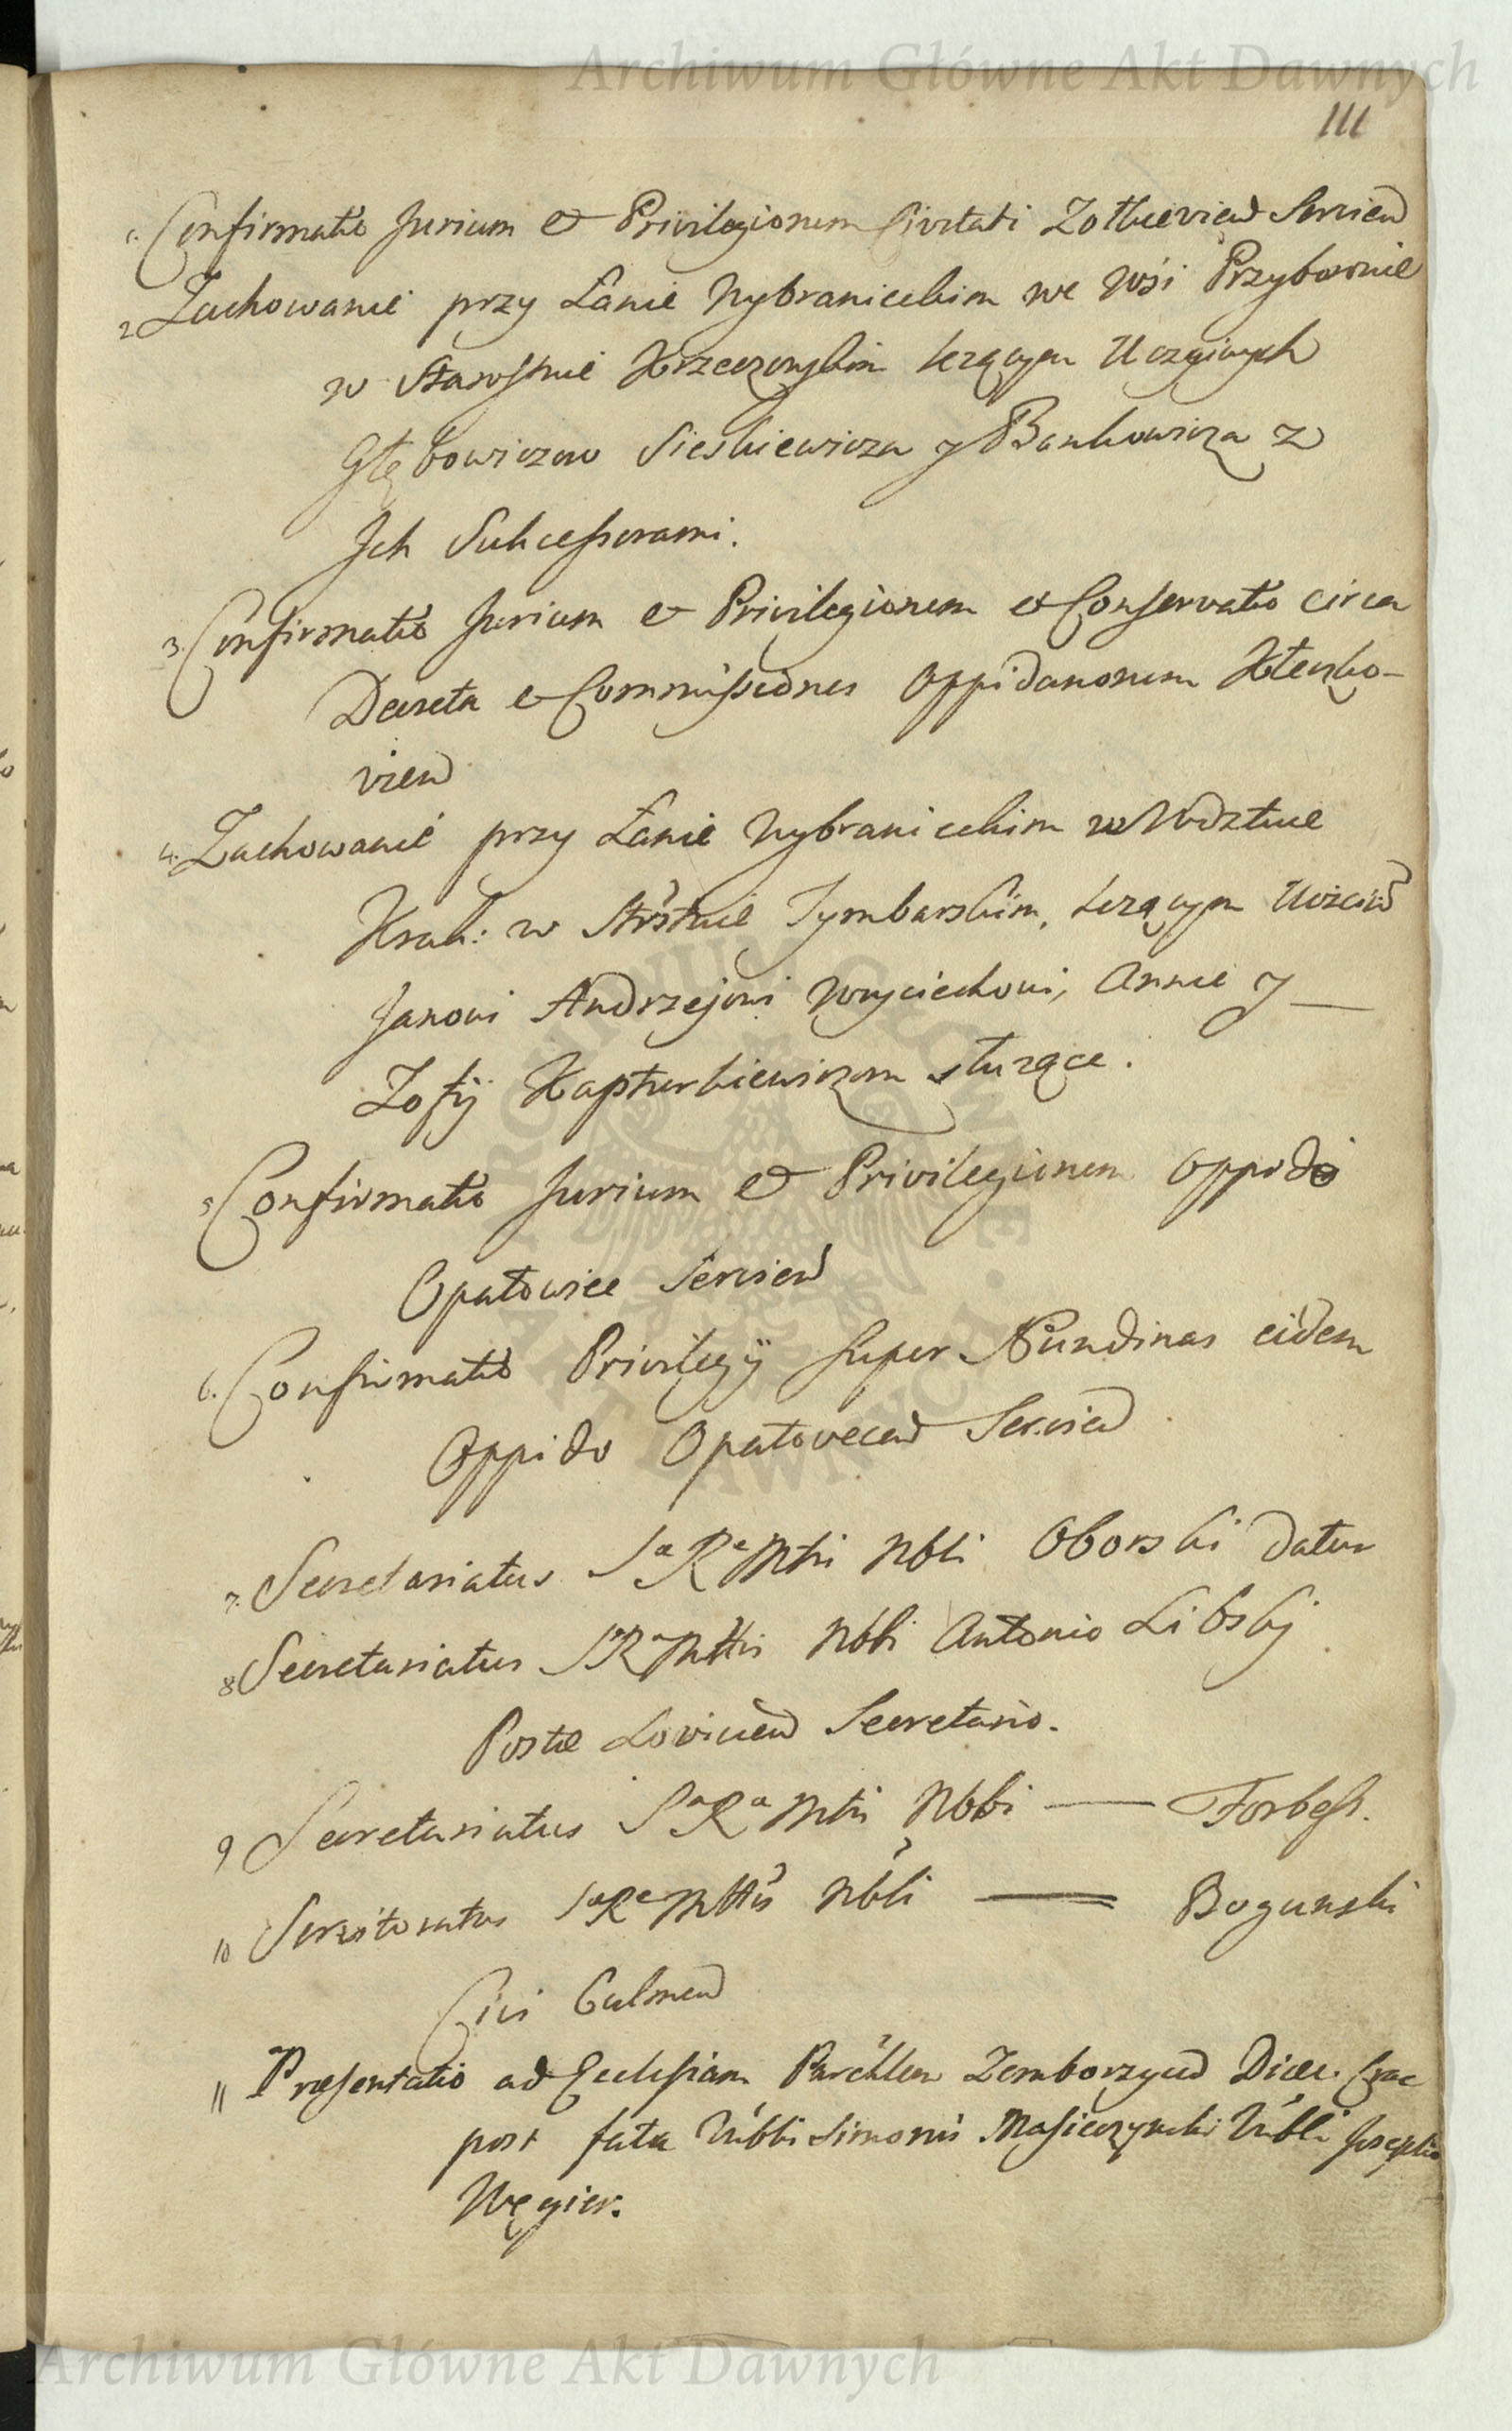 Archiwum Główne Akt Dawnych
111
1. Confirmatio Jurium et Privilegiorum Civitati Zołkievien Servien
2 Zachowanie przy Łanie Wybranieckim we Wsi Przyborowie
w Starostwie Krzeczowskim lezącym Uczciwych
Głębowiczow Sieskiewicza y Bankowicza z
Jch Sukcessorami.
3. Confirmatio Jurium et Privilegiorum et Conservatio circa
Decreta et Commissiones Oppidanorum
vien
4. Zachowanie przy Łanie Wybranieckim w Wdztwie
Krak: w Strstwie Tymbarskim, lezącym Uczciw
Janowi Andrzejowi Woyciechowi, Annie y —
Zofij Kapturkiewiczom słuzące.
5 Confirmatio Jurium et Privilegiorum Oppido
Opatowiec Servien
6. Confirmatio Privilegij super Nundinas eidem
Oppido Opatovecen Servien
7. Secretariatus Sæ Ræ Mttis Nbli Oborski datur
8 Secretariatus Sæ Ræ Mttis Nbli Antonio Libskj
Postæ Lovicien Secretario.
9 Secretariatus Sæ Ræ Mttis Nbli — Forbess.
10 Servitoratus Sæ Ræ Mttis Nbli — Bogunski
Civi Culmen
11 Præsentatio ad Ecclesiam Parchlem Zemborzycen Diæc. Crac
post fata Vnbli Simonis Vnbli Josepho
Węgier.
Archiwum Główne Akt Dawnych